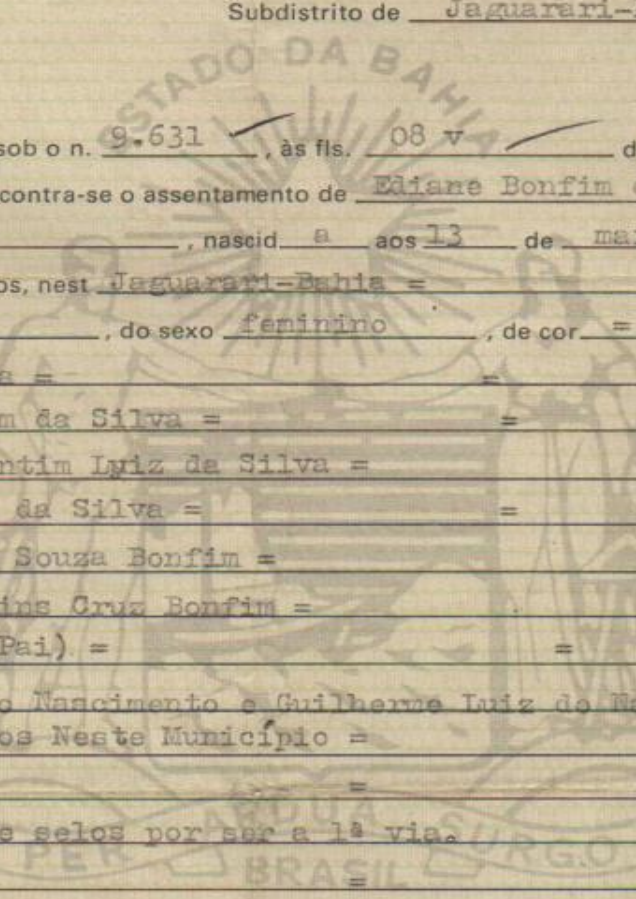 Subdistrito de Jaguarari-
ESTADO DA BAHIA
sob o n. 9.631, às fls. 08 v d
contra-se o assentamento de Ediane Bonfim
, nascid a aos 13 de mar
os, nest Jaguarari-Bahia =
, do sexo feminino, de cor =
a = =
m da Silva = =
ntim Luiz da Silva =
da Silva = =
Souza Bonfim =
ins Cruz Bonfim =
Pai) = =
o Nascimento e Guilherme Luiz do Na
os Neste Município =
=
e selos por ser a 1ª via.
PER ARDUA SURGO
BRASIL
=